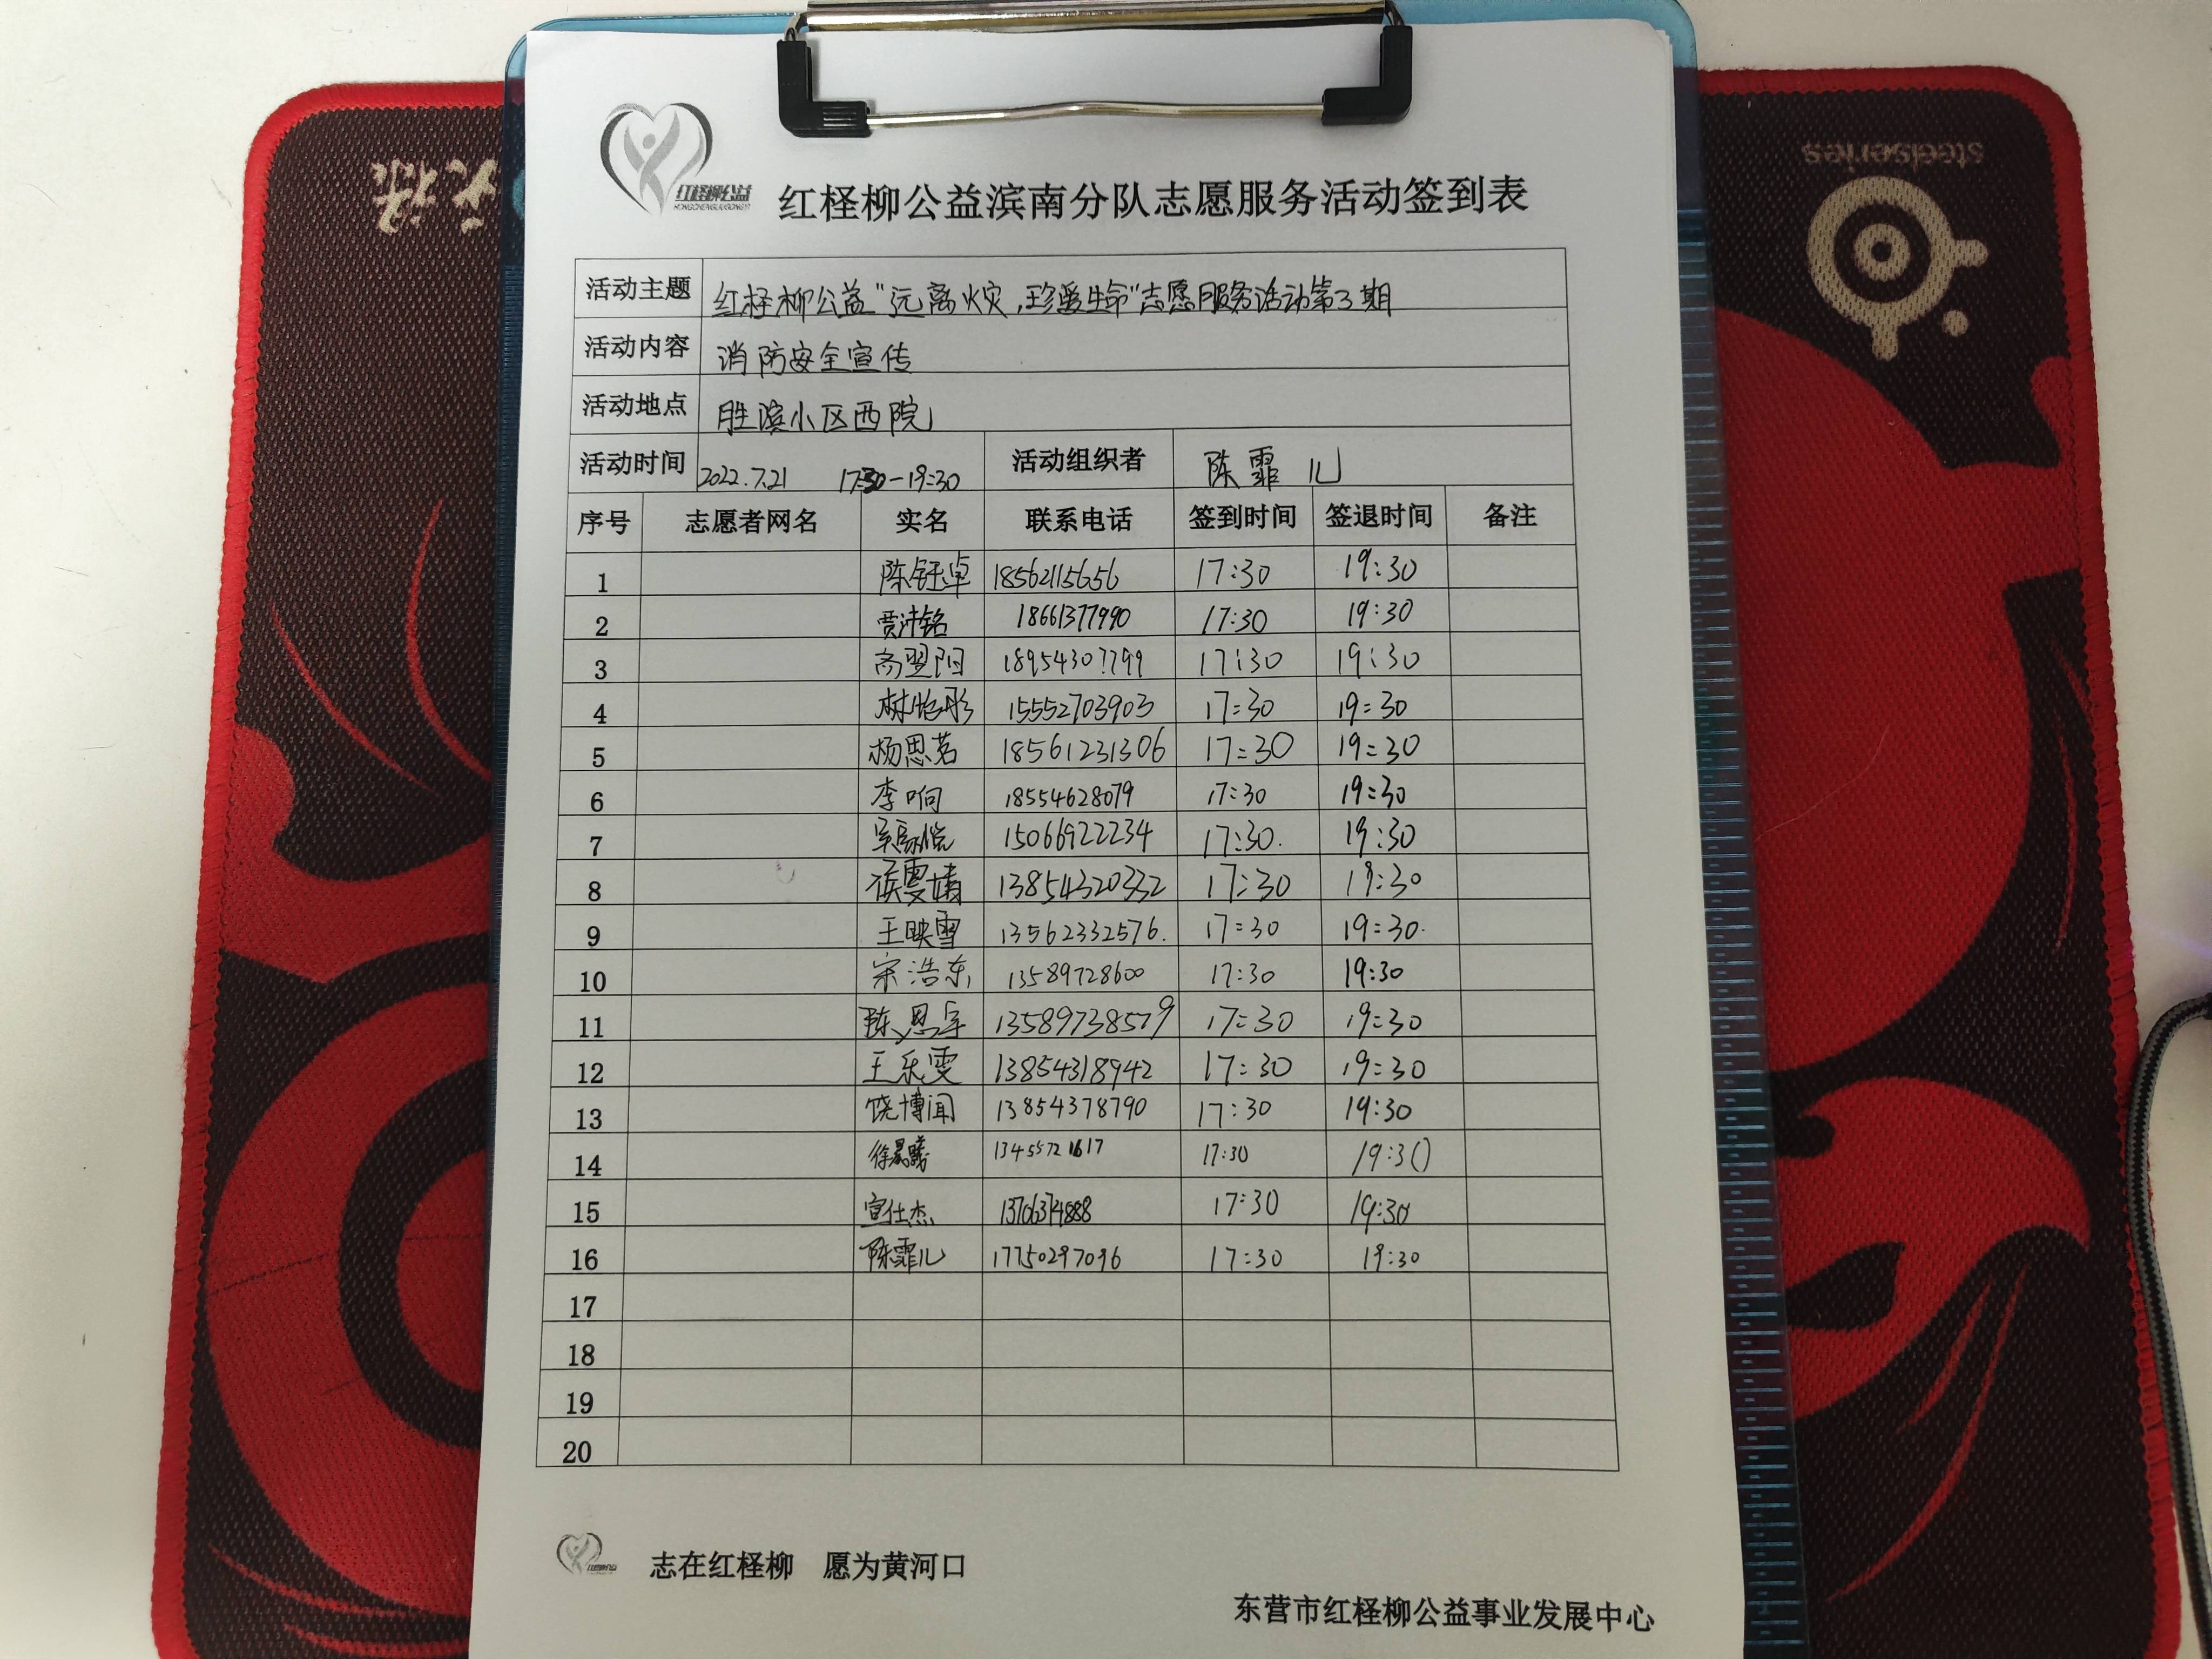 红柽柳公益
HONGCHENGLIUGONGYI
红柽柳公益滨南分队志愿服务活动签到表
steelseries
活动主题 红柽柳公益"远离火灾,珍爱生命"志愿服务活动第3期
活动内容 消防安全宣传
活动地点 胜滨小区西院
活动时间 2022.7.21 17:30-19:30 活动组织者 陈霏儿
序号 志愿者网名 实名 联系电话 签到时间 签退时间 备注
1 陈钰卓 18562115656 17:30 19:30
2 贾汁铭 18661377990 17:30 19:30
3 高翌阳 18954307799 17:30 19:30
4 林怡彤 15552703903 17:30 19:30
5 杨思茗 18561231306 17:30 19:30
6 李响 18554628079 17:30 19:30
7 15066922234 17:30. 19:30
8 侯雯婧 13854320332 17:30 19:30
9 王映雪 13562332576. 17:30 19:30.
10 宋浩东 13589728600 17:30 19:30
11 陈恩宇 13589738579 17:30 19:30
12 王乐雯 13854318942 17:30 19:30
13 饶博闻 13854378790 17:30 19:30
14 徐晨曦 13455721617 17:30 19:30
15 宣仕杰 13706374888 17:30 19:30
16 陈霏儿 17750297096 17:30 19:30
17
18
19
20
志在红柽柳 愿为黄河口
东营市红柽柳公益事业发展中心